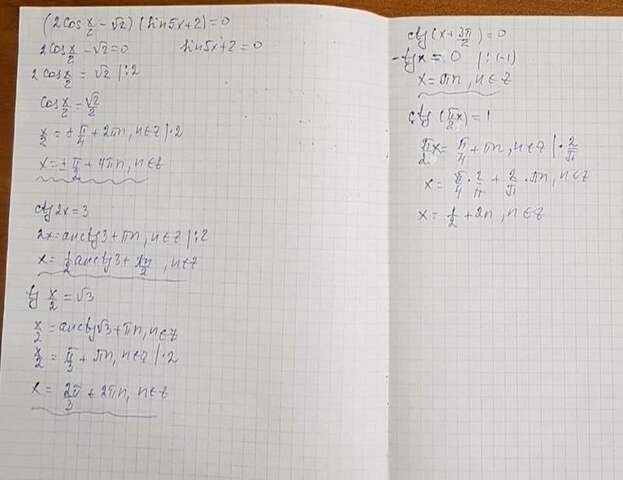 (2cos x/2 - √2)(sin5x+2)=0
2cos x/2 - √2=0    sin5x+2=0
2cos x/2 = √2 |:2
cos x/2 = √2/2
x/2 = ± π/4 + 2πn, n∈Z |·2
x = ± π/2 + 4πn, n∈Z
ctg2x=3
2x=arcctg3+πn, n∈Z |:2
x= 1/2 arcctg3+ πn/2, n∈Z
tg x/2 = √3
x/2 = arctg√3+πn, n∈Z
x/2 = π/3 + πn, n∈Z |·2
x = 2π/3 + 2πn, n∈Z
ctg(x+ 3π/2)=0
-tgx = 0 |:(-1)
x=πn, n∈Z
ctg(π/2 x)=1
π/2 x= π/4 +πn, n∈Z |· 2/π
x= π/4 · 2/π + 2/π · πn, n∈Z
x= 1/2 +2n, n∈Z